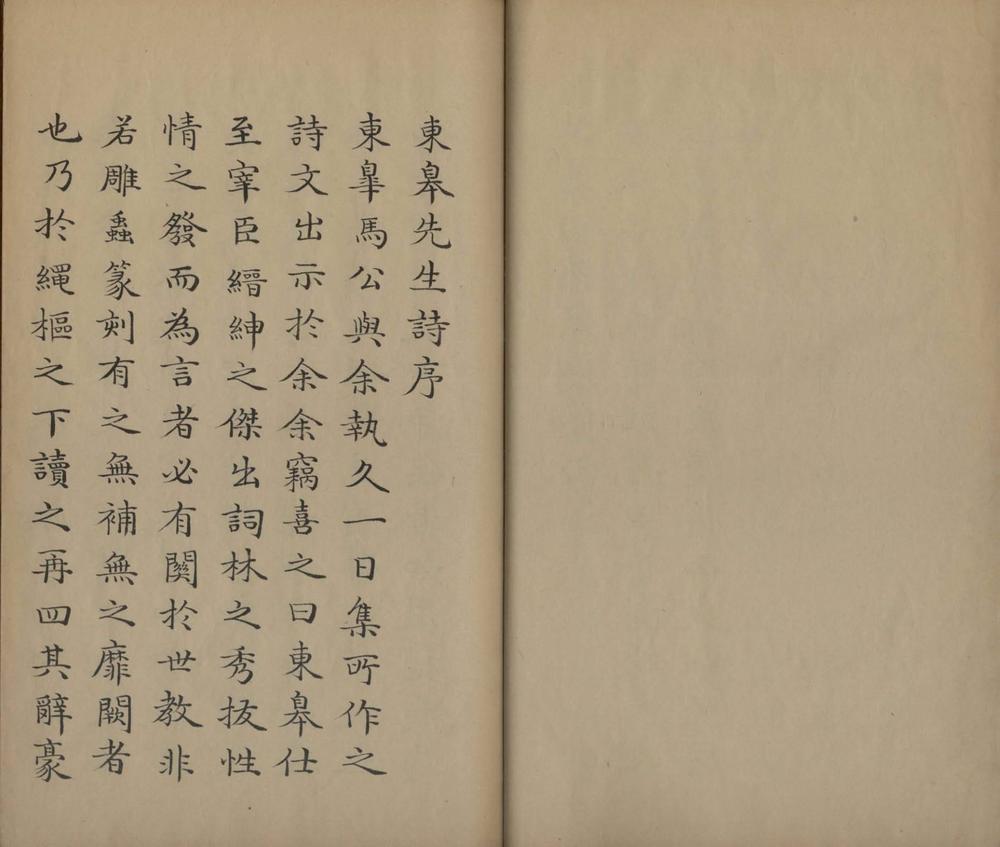 東皋先生詩序
東皋馬公與余執久一日集所作之
詩文出示於余余竊喜之曰東皋仕
至宰臣縉紳之傑出詞林之秀拔性
情之發而為言者必有関於世教非
若雕蟲篆刻有之無補無之靡闕者
也乃於繩樞之下讀之再四其辭豪